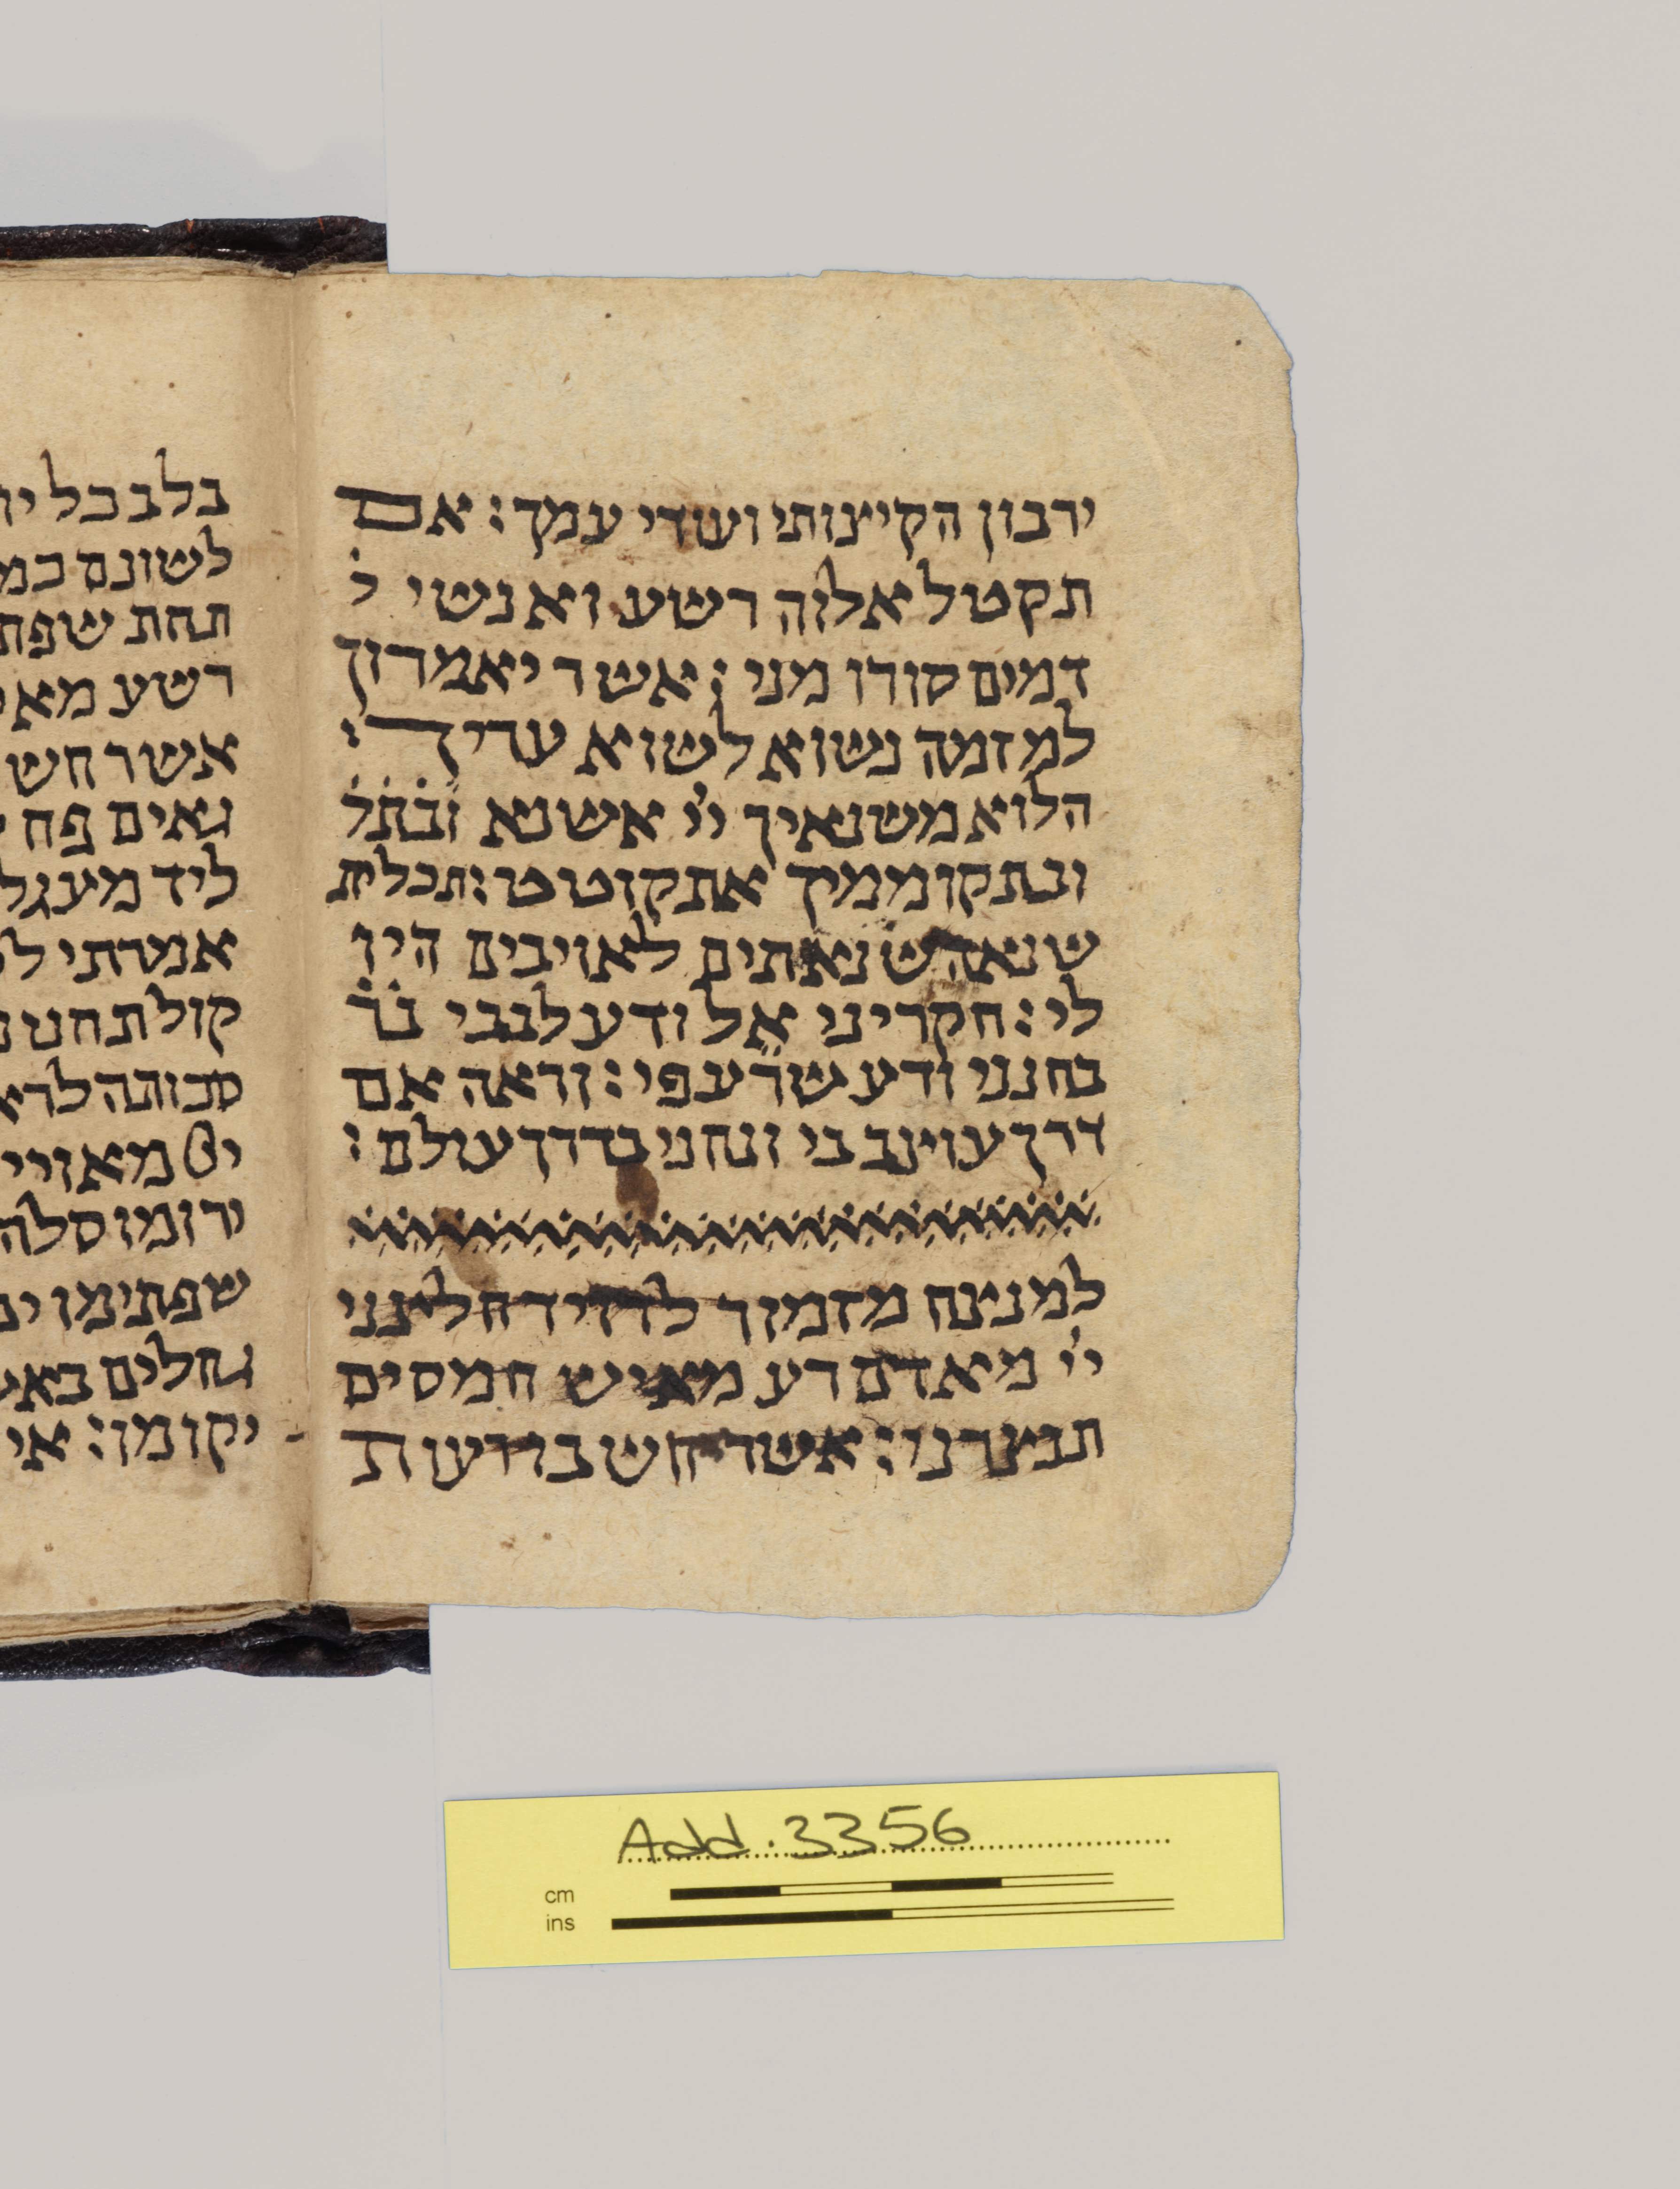 ירבון הקיצותי ועודי עמך : אם
תקטל אלוה רשע ואנשי ל
דמים סורו מני : אשר יאמרוך
למזמה נשוא לשוא עריך :
הלוא משנאיך ייי אשנא ובתל
ובתקוממיך אתקוטט : תכלית
שנאה שנאתים לאויבים היו
לי : חקריני אל ודע לבבי בר
בחנני ודע שרעפי : וראה אם
דרך עוצב בי ונחני בדרך עולם :
למנצח מזמור לדויד חלצני
ייי מאדם רע מאיש חמסים
תנצרני : אשר חשבו רעות
בלב כל יו
לשונם כמ
תחת שפת
רשע מא
אשר חש
גאים פח
ליד מעגל
אמרתי ל
קול תחנו
סכותה לרא
מאויי
ירומו סלה
שפתימו
גחלים בא
יקומו : אי
Add. 3356
cm
ins